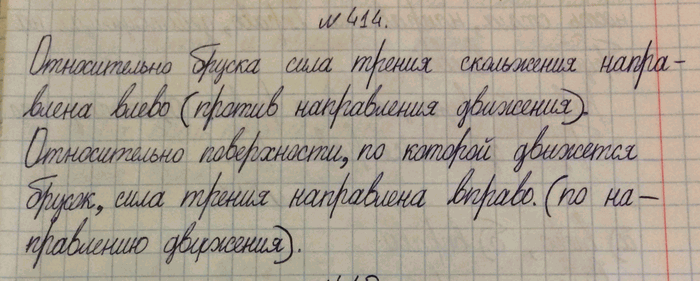 № 414.
Относительно бруска сила трения скольжения напра-
влена влево (против направления движения).
Относительно поверхности, по которой движется
брусок, сила трения направлена вправо. (по на-
правлению движения).